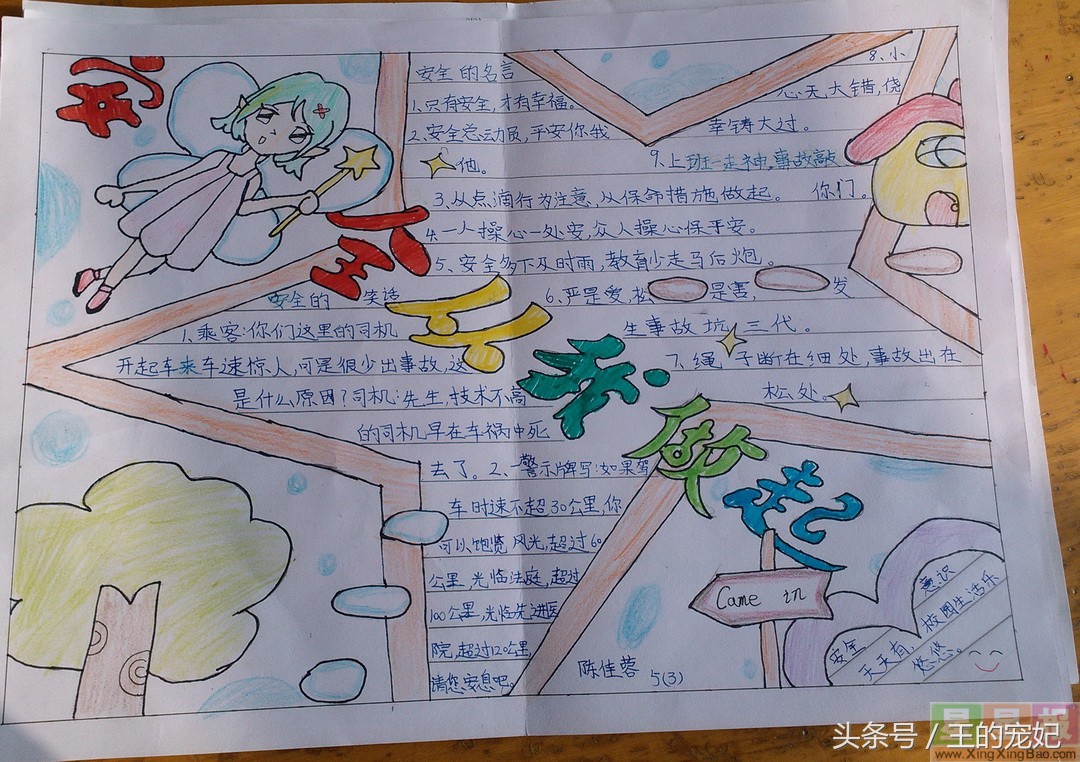 安全
于手做起
安全的名言
1、只有安全,才有幸福。
2、安全总动员,平安你我
他。
3、从点滴行为注意,从保命措施做起。
4、一人操心一处安,众人操心保平安。
5、安全多下及时雨,教育少走马后炮。
6、严是爱,松是害,发
生事故坑三代。
7、绳子断在细处,事故出在
松处。
8、小
心无大错,侥
幸铸大过。
9、上班一走神,事故敲
你们。
安全的笑话
1、乘客:你们这里的司机
开起车来车速惊人,可是很少出事故,这
是什么原因?司机:先生,技术不高
的司机早在车祸中死
去了。2、一警示牌写:如果驾
车时速不超30公里,你
可以饱览风光,超过60
公里,光临法庭,超过
100公里,光临先进医
院,超过120公里,
请您安息吧。
陈佳蓉 5(3)
Came in
安全意识
天天有,校园生活乐
悠悠。
头条号/王的宠妃
星星报
www.XingXingBao.com